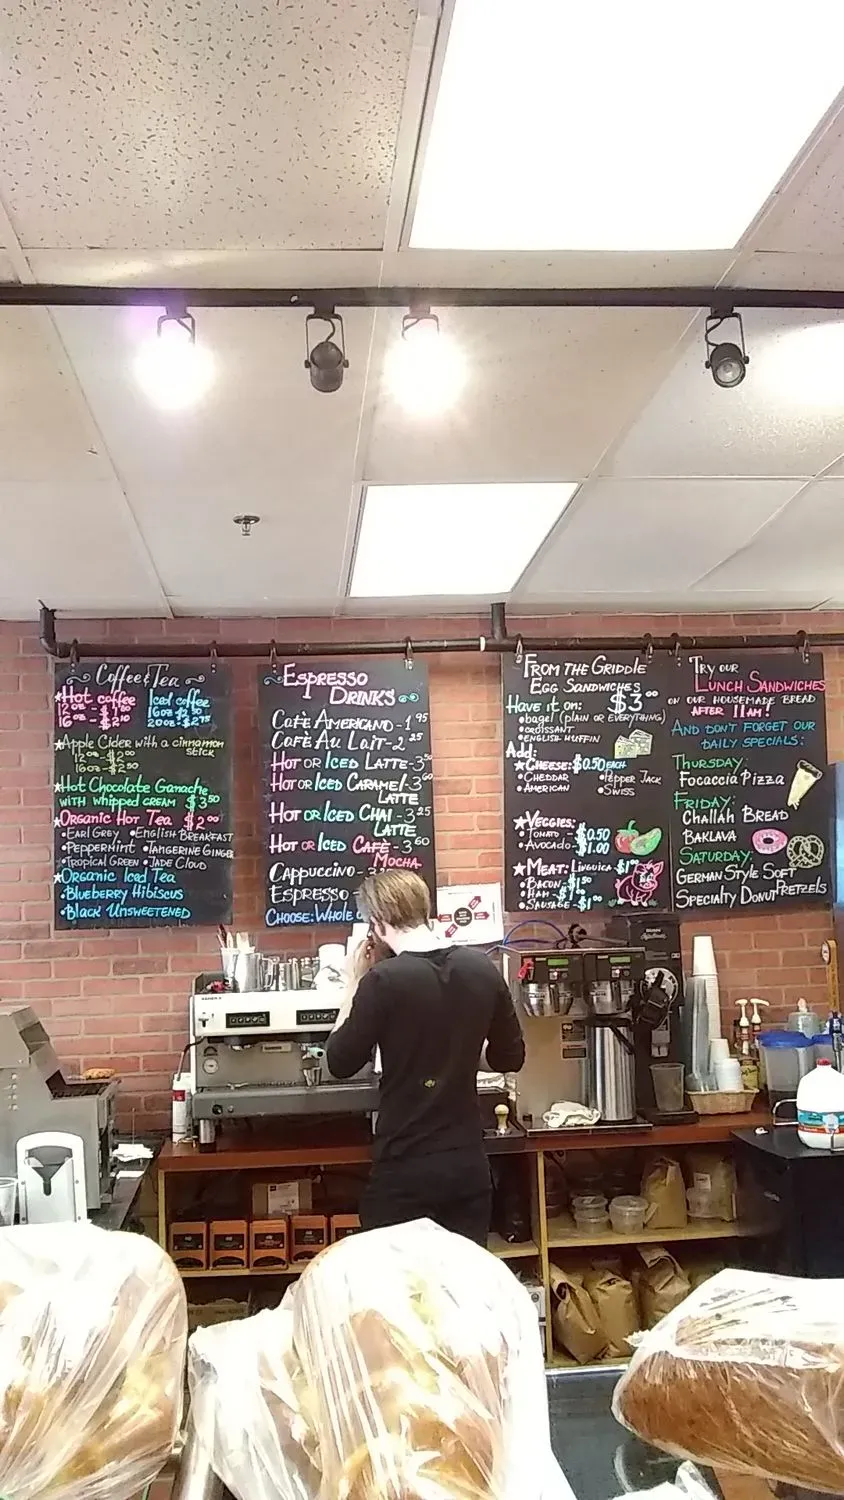 Coffee & Tea
★Hot coffee
12 oz - $1.80
16 oz - $2.10
Iced coffee
16 oz $2.50
20 oz - $2.75
★Apple Cider with a cinnamon
stick
12 oz - $2.00
16 oz - $2.50
★Hot Chocolate Ganache
with whipped cream $3.50
★Organic Hot Tea $2.00
•Earl Grey •English Breakfast
•Peppermint •Tangerine Ginger
•Tropical Green •Jade Cloud
★Organic Iced Tea
•Blueberry Hibiscus
•Black Unsweetened
Espresso
Drinks
Cafè Americano - 1.95
Cafè Au Lait - 2.25
Hot or Iced Latte - 3.50
Hot or Iced Caramel - 3.60
Latte
Hot or Iced Chai - 3.25
Latte
Hot or Iced Cafè - 3.60
Mocha
Cappuccino - 3
Espresso
Choose: Whole
From the Griddle
Egg Sandwiches
$3.00
Have it on:
•bagel (plain or everything)
•croissant
•English muffin
Add:
★Cheese: $0.50 each
•Cheddar •Pepper Jack
•American •Swiss
★Veggies:
•Tomato - $0.50
•Avocado - $1.00
★Meat: Linguica - $1.00
•Bacon - $1.50
•Ham - $1.50
•Sausage - $1.00
Try our
Lunch Sandwiches
on our housemade bread
after 11am!
And don't forget our
daily specials:
Thursday:
Focaccia Pizza
Friday:
Challah Bread
Baklava
Saturday:
German Style Soft
Pretzels
Specialty Donut